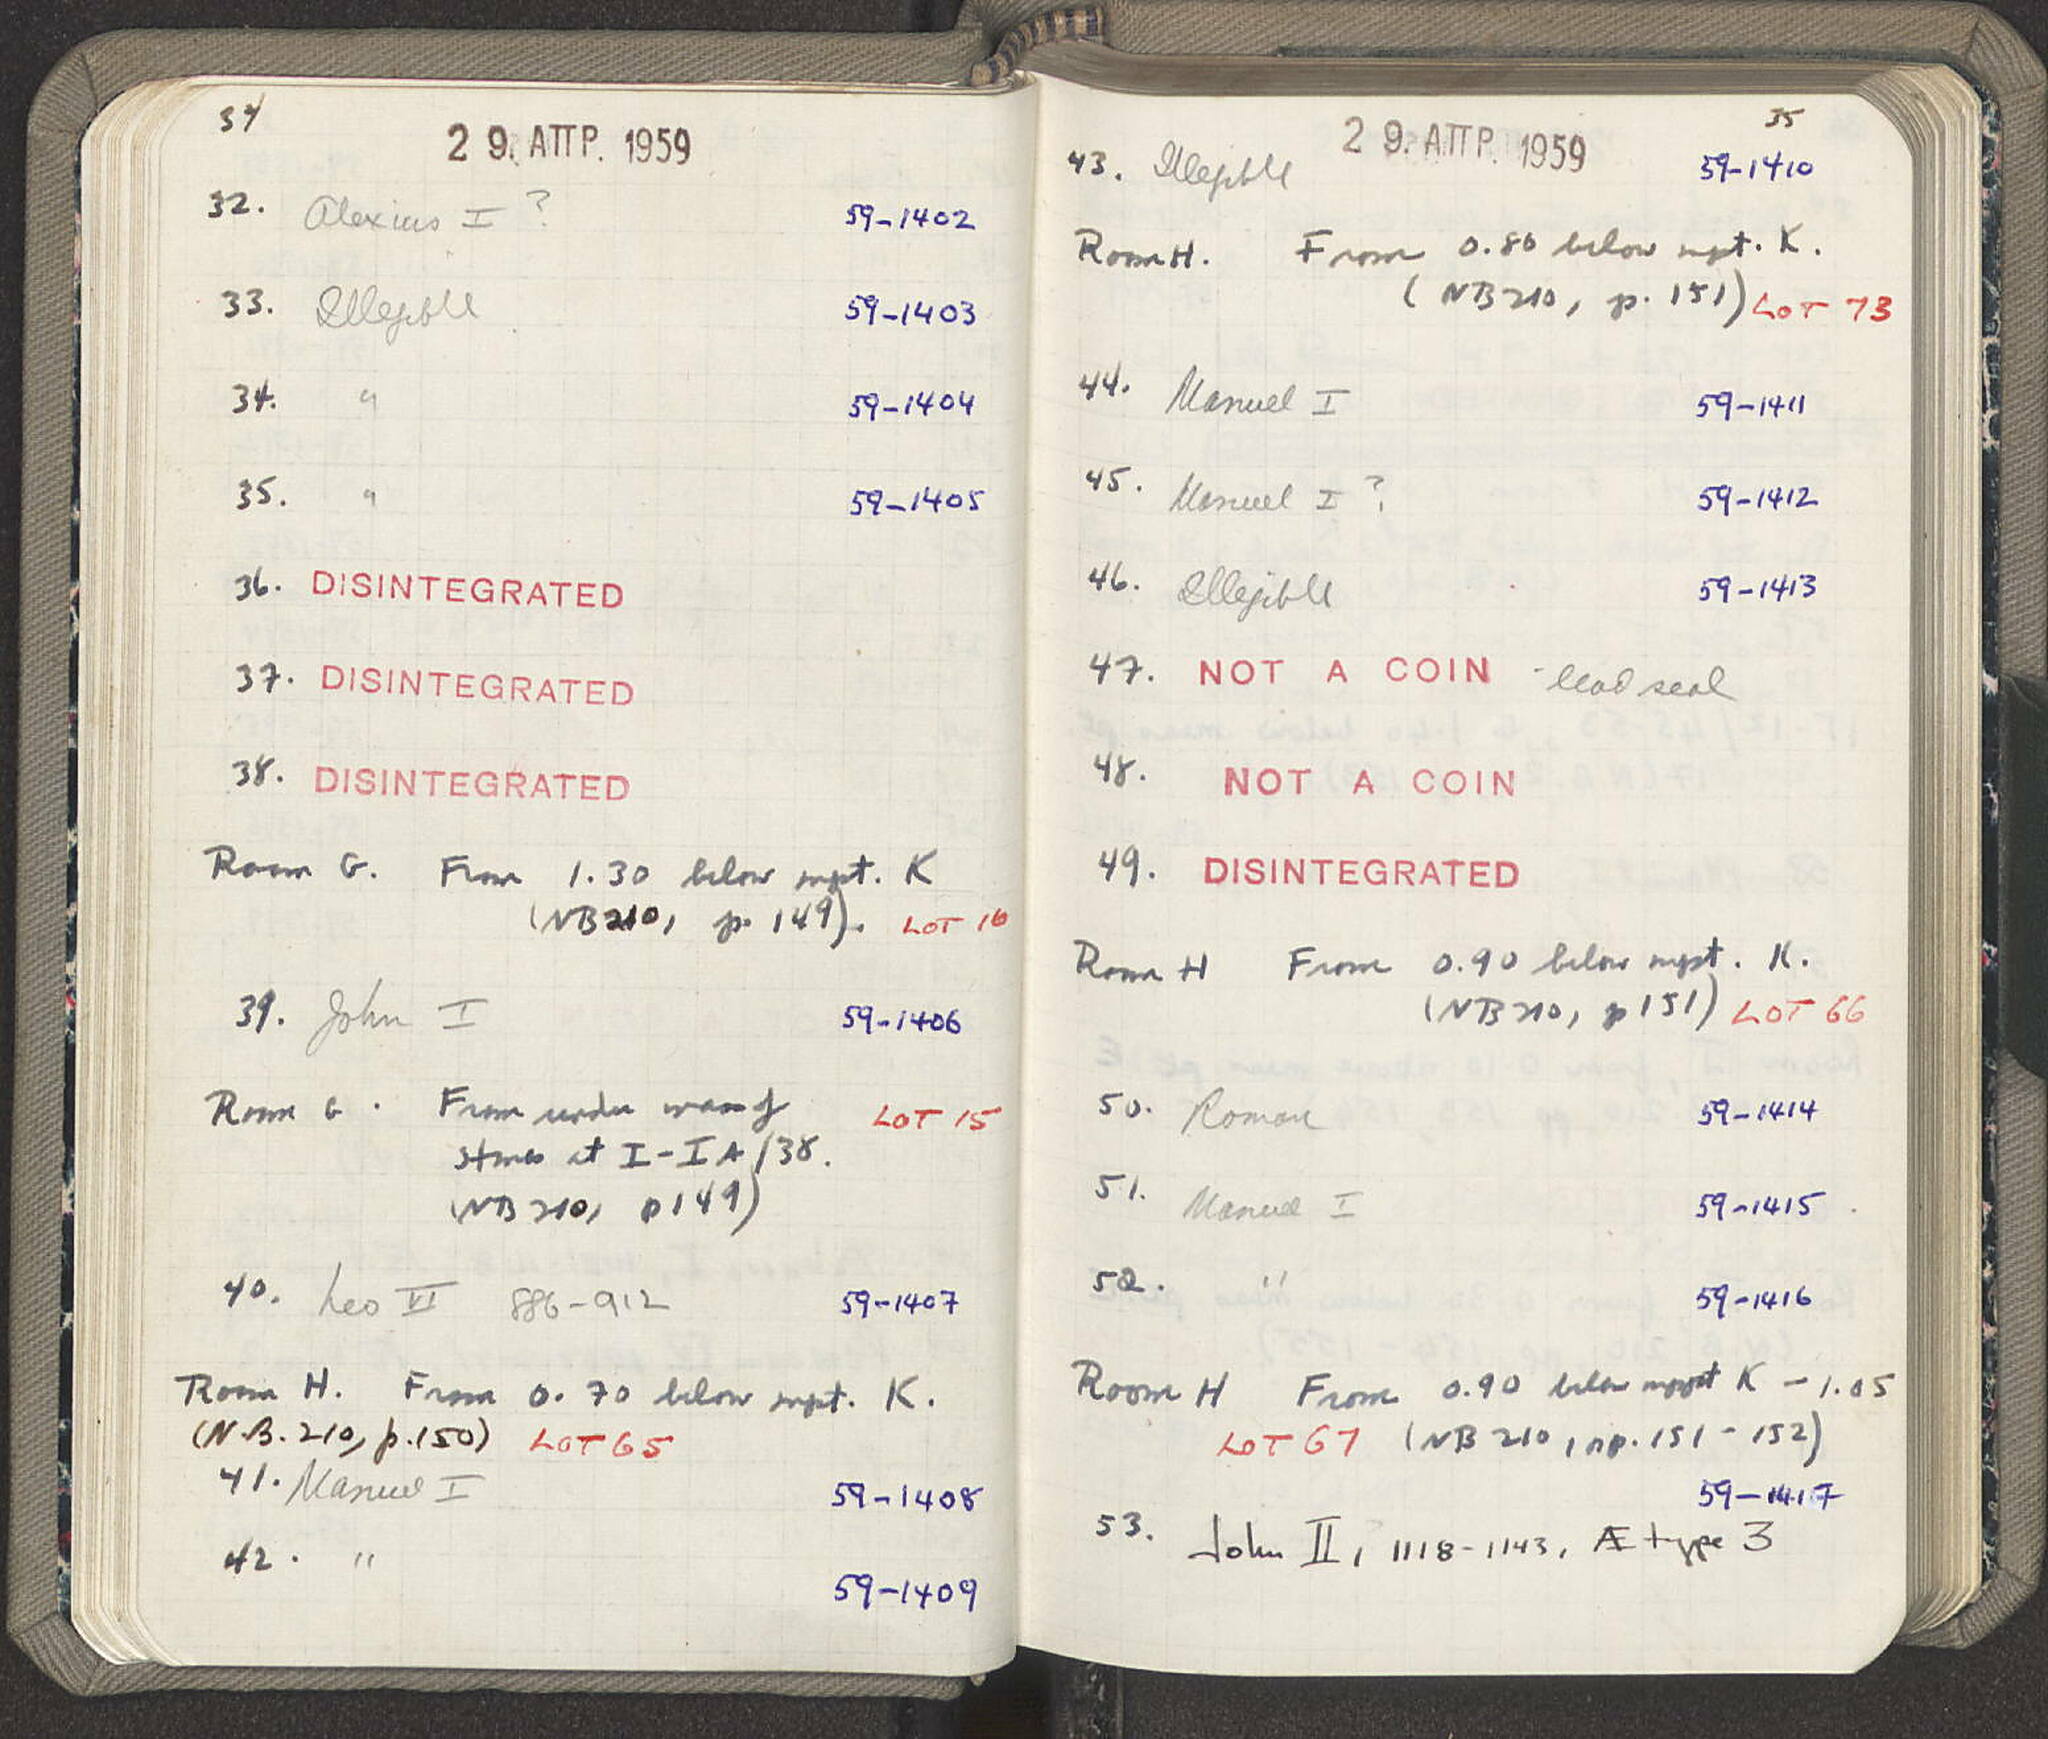 34
29. ΑΠΡ. 1959
32. Alexius I ? 59-1402
33. Illegible 59-1403
34. " 59-1404
35. " 59-1405
36. DISINTEGRATED
37. DISINTEGRATED
38. DISINTEGRATED
Room G. From 1.30 below mpt. K
(NB210, p. 149). LOT 16
39. John I 59-1406
Room G. From under mass of LOT 15
stones at I-IA/38.
(NB 210, p149)
40. Leo VI 886-912 59-1407
Room H. From 0.70 below mpt. K.
(N.B. 210, p.150) LOT 65
41. Manuel I 59-1408
42. "
59-1409
35
29. ΑΠΡ. 1959
43. Illegible 59-1410
Room H. From 0.80 below mpt. K.
(NB210, p. 151) LOT 73
44. Manuel I 59-1411
45. Manuel I ? 59-1412
46. Illegible 59-1413
47. NOT A COIN - lead seal
48. NOT A COIN
49. DISINTEGRATED
Room H From 0.90 below mpt. K.
(NB 210, p151) LOT 66
50. Roman 59-1414
51. Manuel I 59-1415
52. " 59-1416
Room H From 0.90 below mpt K - 1.05
LOT 67 (NB 210, pp. 151-152)
59-1417
53. John II, 1118-1143, Æ type 3